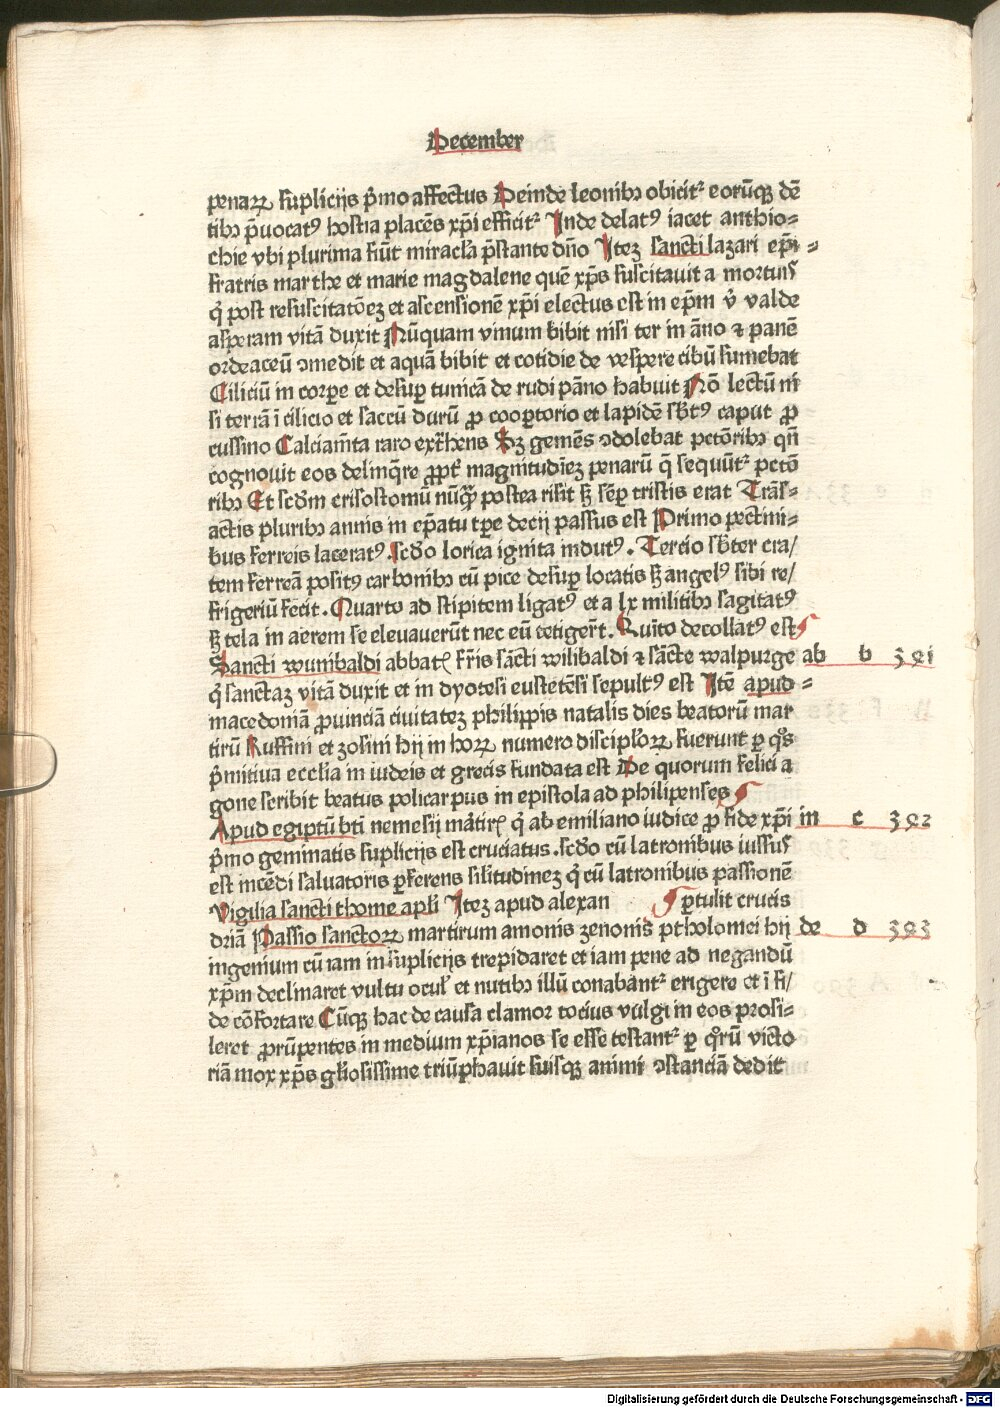 December
penaꝝ supliciis p̄mo affectus Deinde leonibꝫ obicit᷒ eorūqꝫ dē
tibꝫ p̄uocatꝰ hostia placēs xp̄i efficit᷒ Inde delatꝰ iacet anthio=
chie vbi plurima fiūt miracl̕a p̄stante dn̄o Itez sancti lazari ep̄i =
fratris marthe et marie magdalene quē xp̄s suscitauit a mortuis
q̇ post resuscitatōeꝫ et ascensionē xp̄i electus est in ep̄m v̇ valde
asperam vitā duxit Nūquam vinum bibit nisi ter in āno ⁊ panē
ordeaceū ꝯmedit et aquā bibit et cotidie de vespere cibū sumebat
Ciliciū in corꝑe et desuꝑ tunicā de rudi pāno habuit Nō lectū ni
si terrā ī cilicio et saccū durū ꝓ cooꝑtorio et lapidē sb̕tꝰ caput ꝓ
cussino Calciam̄ta raro ext̕hens Sꝫ gemēs ꝯdolebat pctōribꝫ qn̄
cognouit eos delinq̄re ꝓpt̕ magnitudīeꝫ penarū q̄ sequūt᷒ pctō
ribꝫ Et scd̄m crisostomū nūq̄ꝫ postea risit sꝫ sēꝑ tristis erat Trās=
actis pluribꝫ annis in ep̄atu tꝑe decii passus est Primo pectini=
bus ferreis laceratꝰ. scd̄o lorica ignita indutꝰ. Tercio sb̕ter cra/
tem ferreā positꝰ carbonibꝫ cū pice desuꝑ locatis sꝫ angelꝰ sibi re/
frigeriū fecit. Quarto ad stipitem ligatꝰ et a lx militibꝫ sagitatꝰ
sꝫ tela in aerem se eleuauerūt nec eū tetiger̄t. Quīto decollatꝰ est
Sancti wunibaldi abbatꝭ fr̄is sācti wilibaldi ⁊ sācte walpurge ab b 391
q̇ sanctaꝫ vitā duxit et in dyotesi eustetēsi sepultꝰ est Itē apud =
macedoniā ꝓuinciā ciuitateꝫ philippis natalis dies beatorū mar
tirū Ruffini et zosini hij in hoꝝ numero discipl̕oꝝ fuerunt ꝑ qͦs
p̄mitiua eccl̕ia in iudeis et grecis fundata est De quorum felici a
gone scribit beatus policarpus in epistola ad philipenses
Apud egiptū bt̄i nemesij mātirꝭ q̇ ab emiliano iudice ꝓ fide xp̄i in c 392
p̄mo geminatis suplicijs est cruciatus. scd̄o cū latronibus iussus
est incēdi saluatoris ꝑferens sil̕itudineꝫ q̇ cū latronibus passionē
Vigilia sancti thome apl̕i Iteꝫ apud alexan ꝑtulit crucis
driā Passio sanctoꝝ martirum amonis zenonis ptholomei hij de d 393
ingenium cū iam in suplicijs trepidaret et iam pene ad negandū
xp̄m declinaret vultu ocul̕ et nutibꝫ illū conabant᷒ erigere et ī fi/
de cōfortare Cūqꝫ hac de causa clamor tocius vulgi in eos prosi=
leret ꝓrūpentes in medium xp̄ianos se esse testant᷒ ꝑ qͦrū victo
riā mox xp̄s gl̕iosissime triūphauit suisqꝫ animi ꝯstanciā dedit
Digitalisierung gefördert durch die Deutsche Forschungsgemeinschaft - DFG